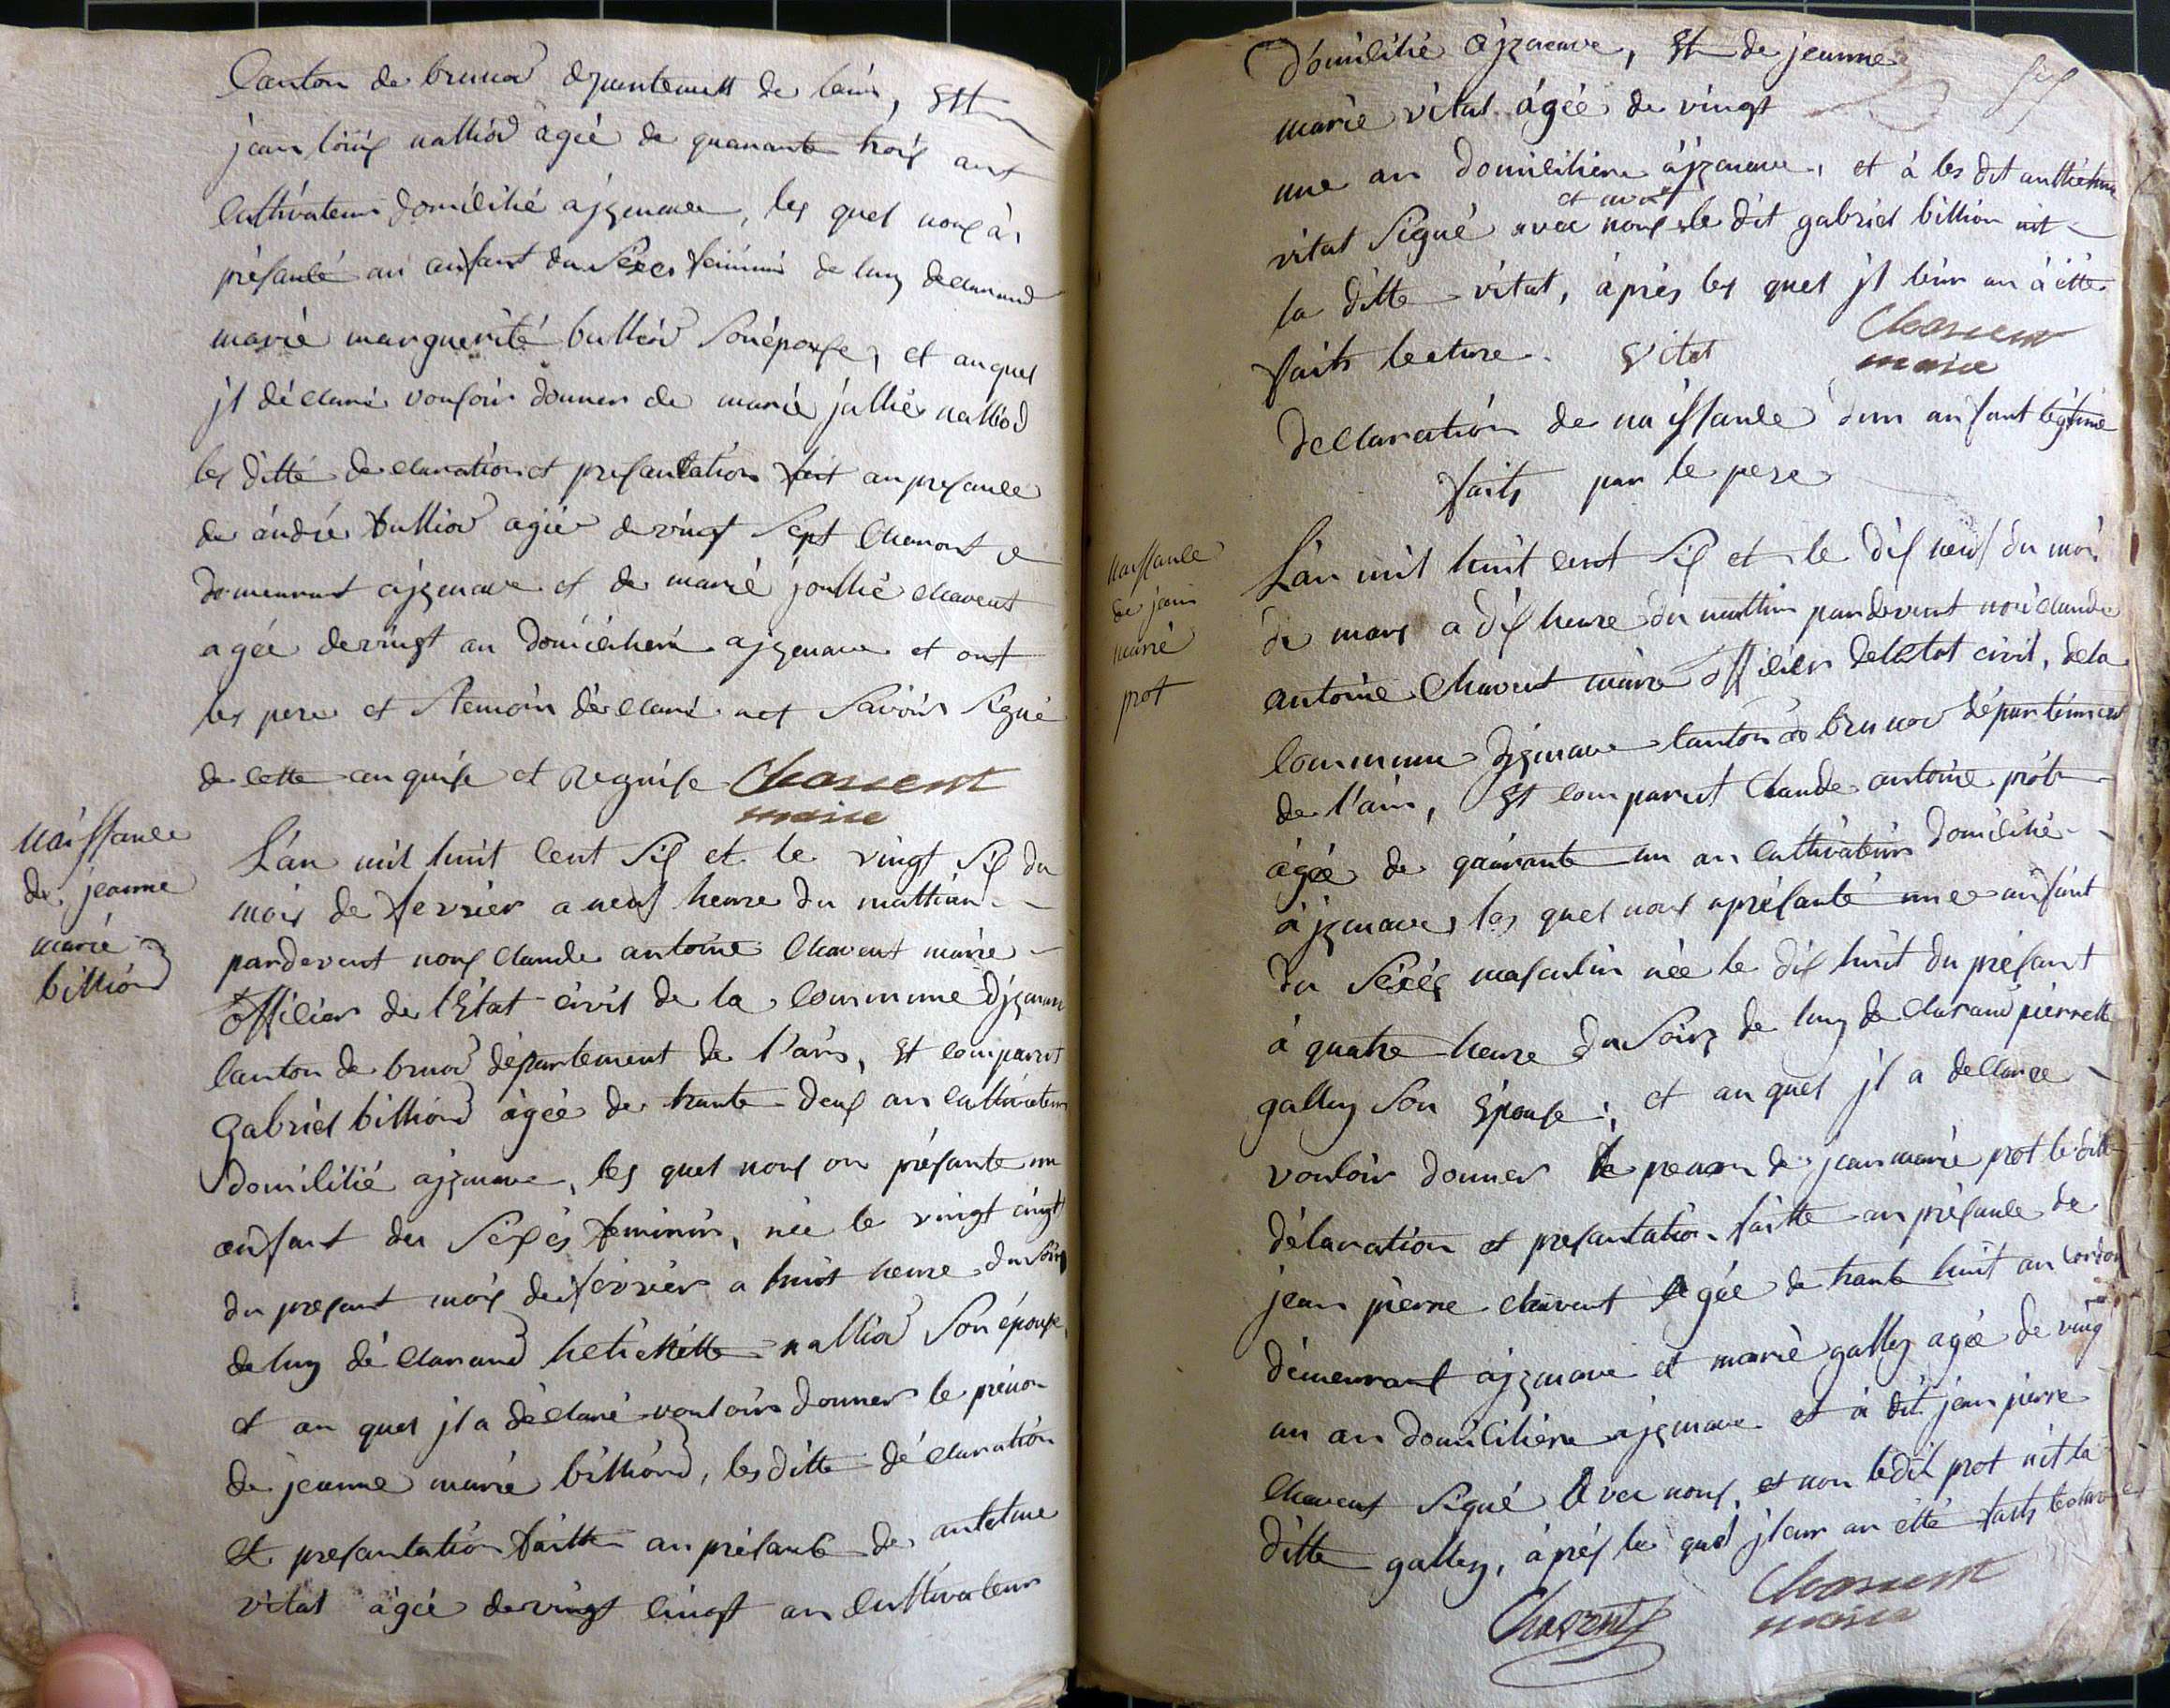 Canton de brunod departement de lain, Est
jean louis nalliod agié de quarante trois ans
cultivateur domicilié ajzenave, les quel nous à
présanté un anfant du Sexes féminin de luy declarand
marie marguerité bulliod Son épouse, et auquel
jl déclaré vousoir donner de marié jullié nalliod
les ditté declaration et présantation fait an presance
de andré tulliod agié de vingt Sept Chavent
demeurant ajzenave et de marié joullié chavent
agée de vingt an domicilière ajzenave et ont
les pere et témoin déclaré net Savoir Signé
de cette enquise et Requise Chavent
maire
Naissance
de jeanne
marié
billiond
L'an mil huit Cent Sis et le vingt Sis du
mois de fevrier a neuf heure du mattien
pardevent nous claude antoine Chavent maire
officier de l'Etat civil de la Commune djzenave
Canton de brunod département de l'ain, Est comparut
gabriel billiond agée de trante deus an cultivateur
domicilié ajzenave, les quel nous on présante un
anfant du Sexes feminin, née le vingt cinqt
du presant mois de fevrier a huit heure du Soir
de luy déclarand nalliod Son épouse,
et au quel jl a déclaré voulloir donner le prénon
de jeanne marié billiond, les ditte déclaration
et presantation faitte an présance de antetme
vital agée de vingt cinqt an cultivateur
domicilié ajzenave, Et de jeanne
marie vital agée de vingt
une an domicilière ajzenave, et à les dit anthelme
et avons
vital Signé avec nous le dit gabriel billion nit
la ditte vital, après les quel jl leur an à étté
faits lecture. Vital Chavent
maire
declaration de naissance dun anfant légitime
faits par le pere
Naissance
de jean
marié
prot
L'an mil huit cent Sis et le dis neuf du mois
de mars a dis heure du mattin pardevent nous claude
antoine Chavent maire officier de l'Etat civil, dela
Commune djzenave Canton de brunod département
de l'ain, Est comparut Claude antoine prot
âgée de quarante un an cultivateur domicilié
à jzenave, les quel nous a présanté une anfant
du Séxes masculin née le dis huit du présant
à quatre heure du Soir, de luy declarand pierrette
galley Son Epouse, et au quel jl a declaré
vouloir donner le prenon de jean marié prot le ditte
déclaration et presantation faitte an présance de
jean pierre chavent Agée de trante huit an
demeurant ajzenave et marié galley agée de ving
un an domicilière ajzenave et à dit jean pierre
Chavent Signé Avec nous, et non ledit prot nit la
ditte galley, àprés le quel jleur an étté faits lecture
Chavent Chavent
maire